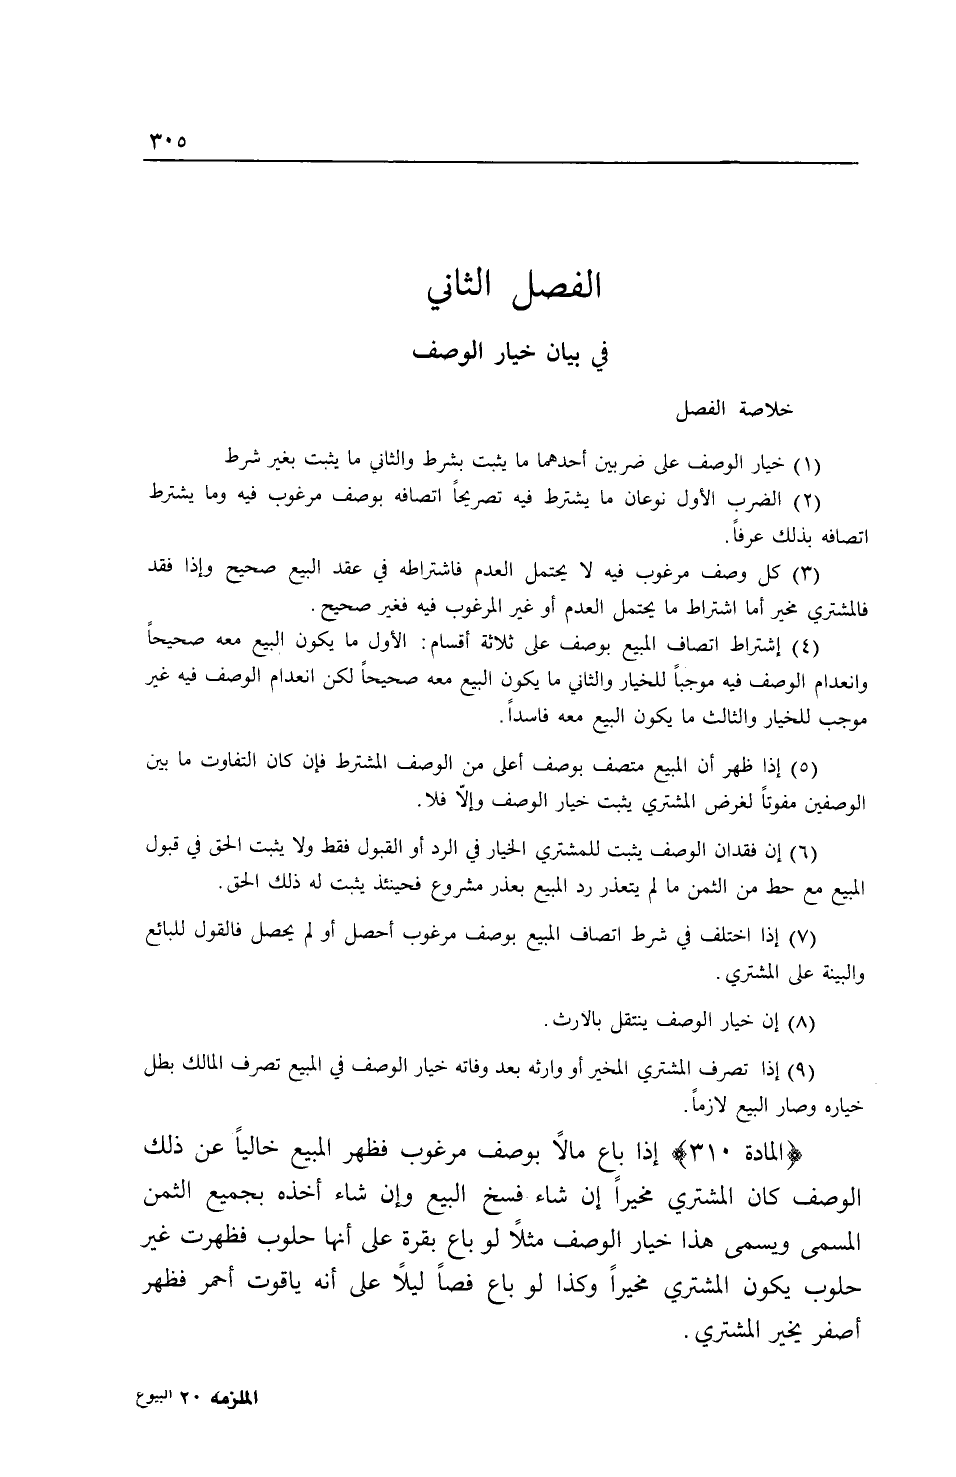 ٣٠٥
الفصل الثاني
في بيان خيار الوصف
خلاصة الفصل
(١) خيار الوصف على ضربين أحدهما ما يثبت بشرط والثاني ما يثبت بغير شرط
(٢) الضرب الأول نوعان ما يشترط فيه تصريحاً اتصافه بوصف مرغوب فيه وما يشترط
اتصافه بذلك عرفاً.
(٣) كل وصف مرغوب فيه لا يحتمل العدم فاشتراطه في عقد البيع صحيح وإذا فقد
فالمشتري مخير أما اشتراط ما يحتمل العدم أو غير المرغوب فيه فغير صحيح.
(٤) إشتراط اتصاف المبيع بوصف على ثلاثة أقسام: الأول ما يكون البيع معه صحيحاً
وانعدام الوصف فيه موجباً للخيار والثاني ما يكون البيع معه صحيحاً لكن انعدام الوصف فيه غير
موجب للخيار والثالث ما يكون البيع معه فاسداً.
(٥) إذا ظهر أن المبيع متصف بوصف أعلى من الوصف المشترط فإن كان التفاوت ما بين
الوصفين مفوتاً لغرض المشتري يثبت خيار الوصف وإلّا فلا.
(٦) إن فقدان الوصف يثبت للمشتري الخيار في الرد أو القبول فقط ولا يثبت الحق في قبول
المبيع مع حط من الثمن ما لم يتعذر رد المبيع بعذر مشروع فحينئذ يثبت له ذلك الحق.
(٧) إذا اختلف في شرط اتصاف المبيع بوصف مرغوب أحصل أو لم يحصل فالقول للبائع
والبينة على المشتري.
(٨) إن خيار الوصف ينتقل بالارث.
(٩) إذا تصرف المشتري المخير أو وارثه بعد وفاته خيار الوصف في المبيع تصرف المالك بطل
خياره وصار البيع لازماً.
﴿المادة ٣١٠﴾ إذا باع مالاً بوصف مرغوب فظهر المبيع خالياً عن ذلك
الوصف كان المشتري مخيراً إن شاء فسخ البيع وإن شاء أخذه بجميع الثمن
المسمى ويسمى هذا خيار الوصف مثلاً لو باع بقرة على أنها حلوب فظهرت غير
حلوب يكون المشتري مخيراً وكذا لو باع فصاً ليلاً على أنه ياقوت أحمر فظهر
أصفر يخير المشتري.
الملزمه ٢٠ البيوع